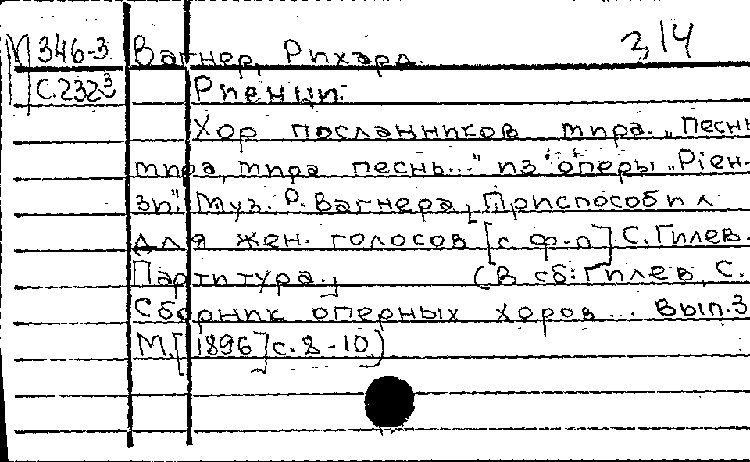 М 346-3 Вагнер, Рихард. 3/4
С.232³ Риенци.
Хор посланников мира. „Песнь
мира, мира песнь..." из оперы „Риен-
зи". Муз. Р. Вагнера, Приспособил
для жен. голосов [с ф-п] С. Гилев.
Партитура. (В сб: Гилев, С.
Сборник оперных хоров... Вып. 3
М. [1896] с. 8-10)